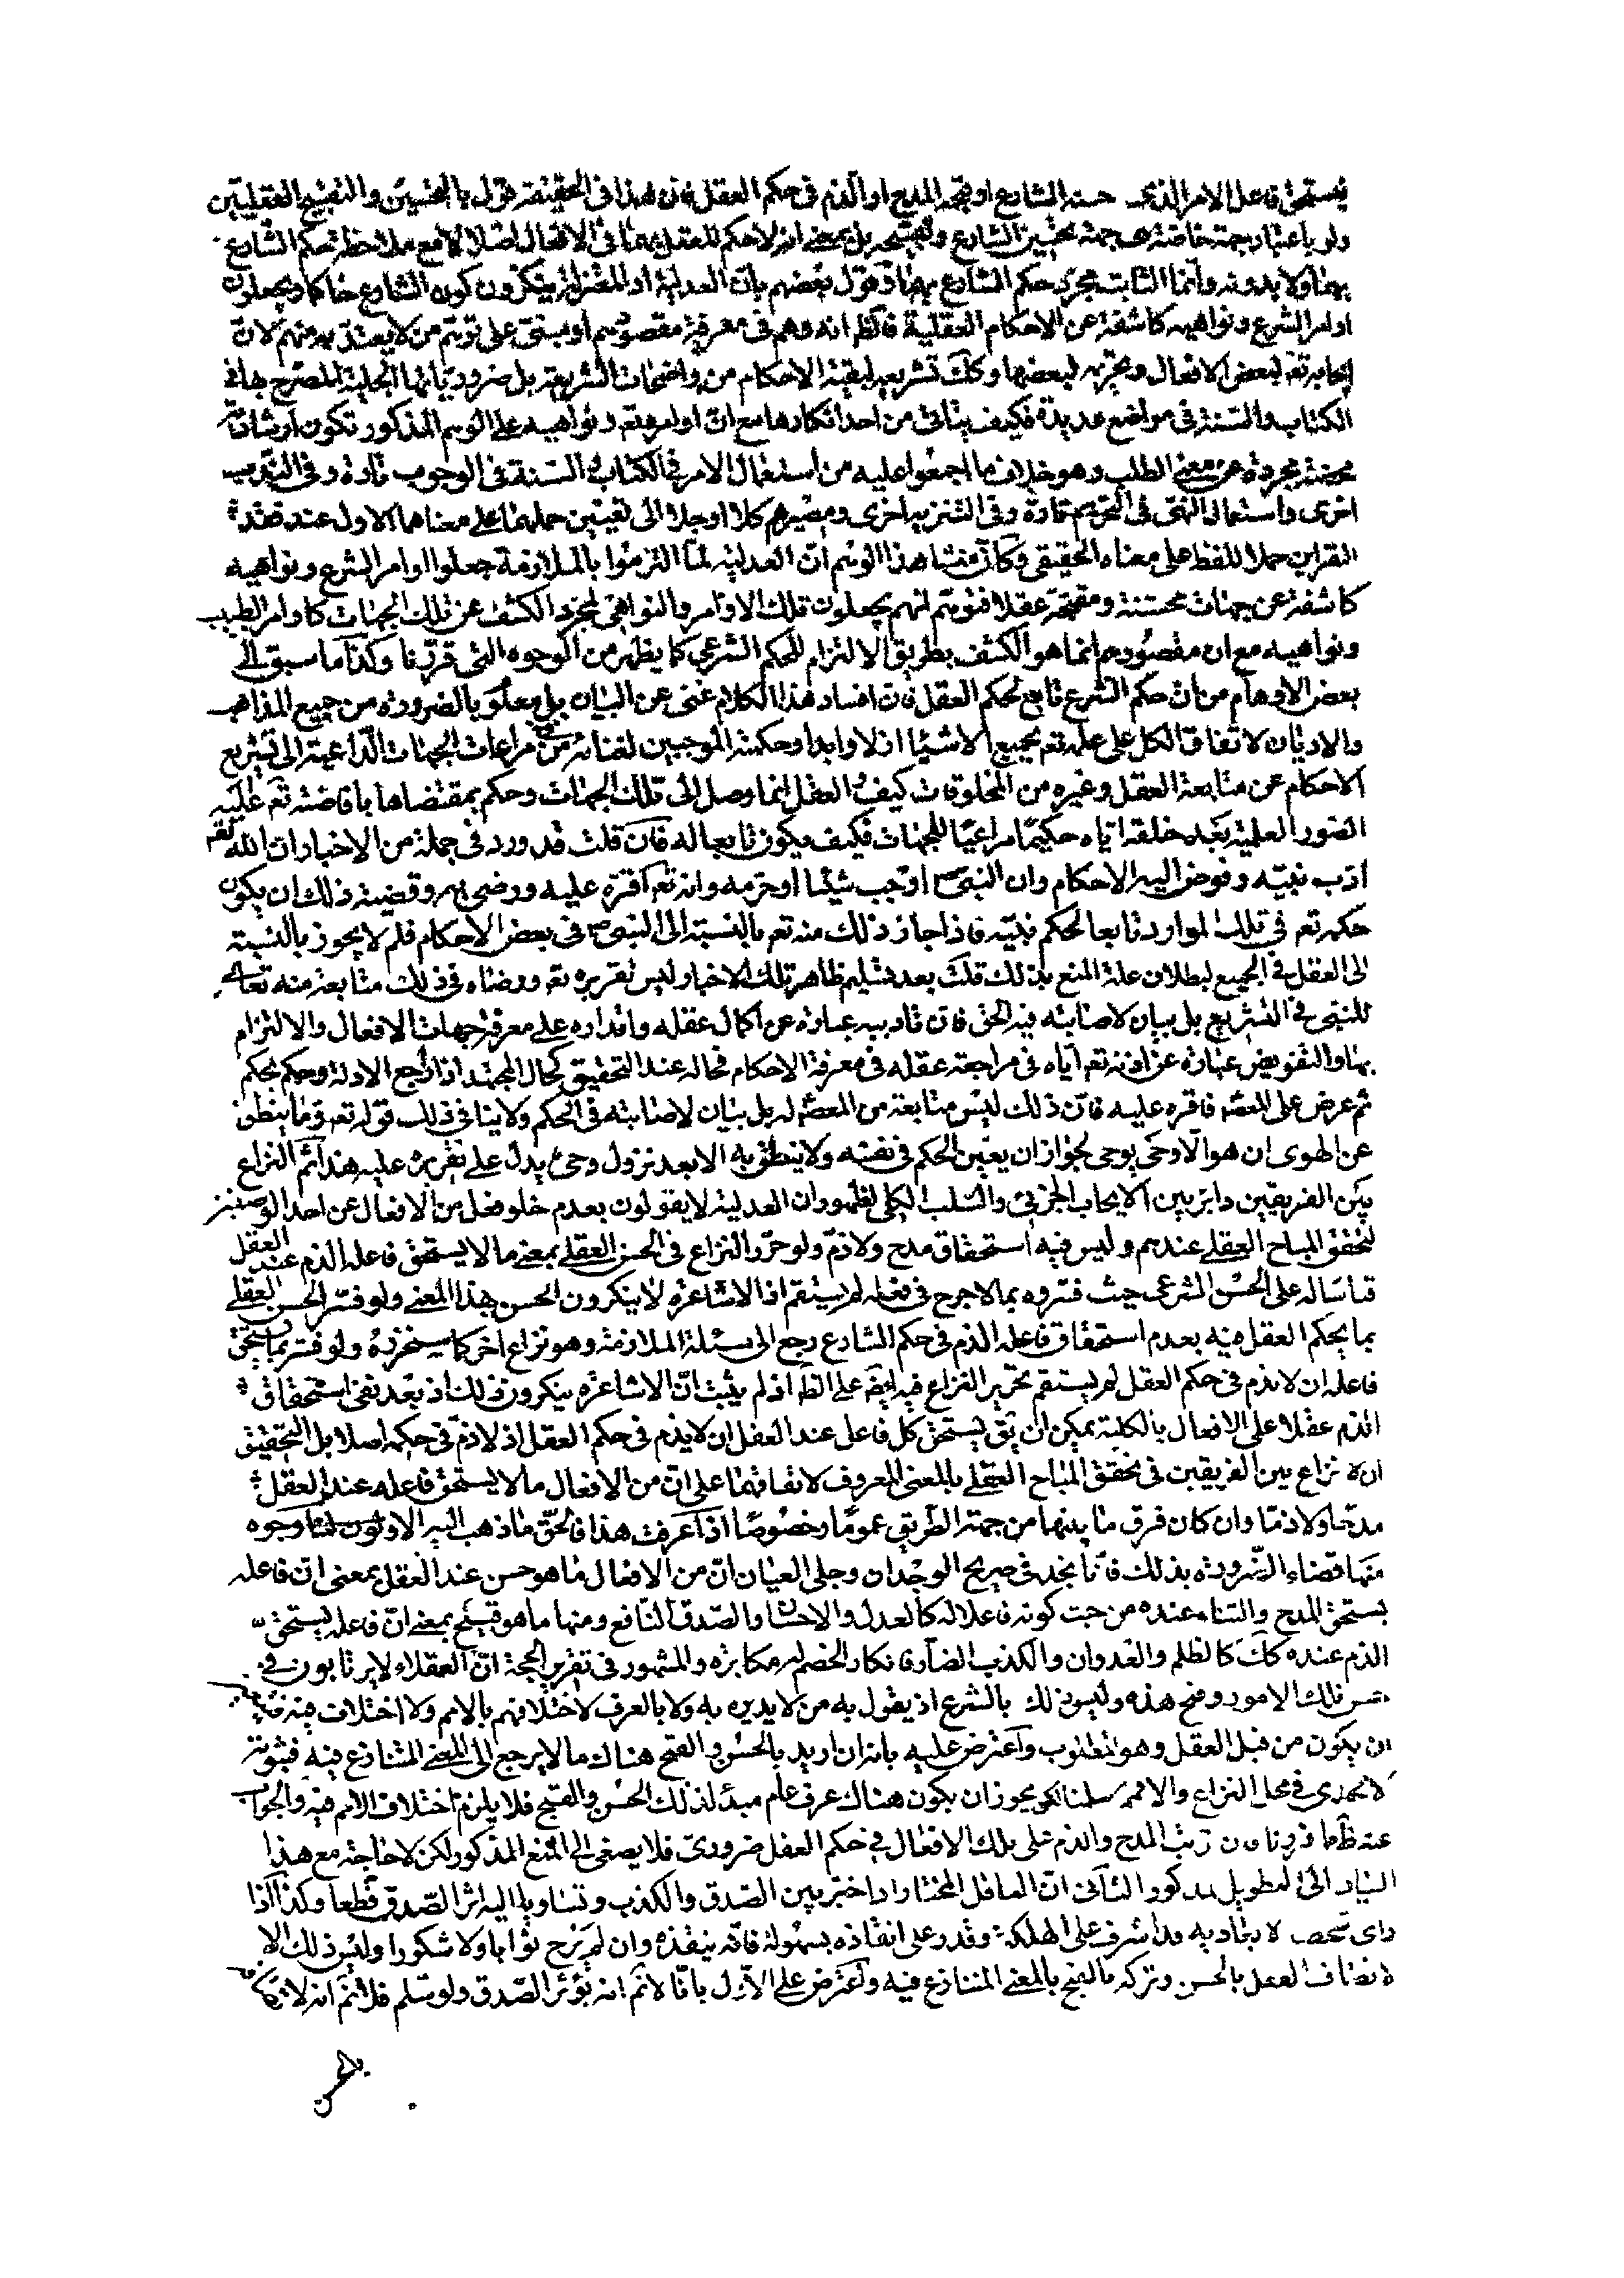 يستحق فاعل الامر الذى حسنه الشارع او قبحه المدح او الذم فى حكم العقل فان هذا فى الحقيقة قول بالتحسين والتقبيح العقليين
ولو باعتبار جهة خاصة هى جهة تحسين الشارع وتقبيحه بل بمعنى انه لا حكم للعقل بهما فى الافعال اصلا لا مع ملاحظة حكم الشارع
بهما ولا بدونه وانما الثابت مجرد حكم الشارع بهما فقول بعضهم بان العدلية او المعتزلة ينكرون كون الشارع حاكما ويجعلون
اوامر الشرع ونواهيه كاشفة عن الاحكام العقلية فالظ انه وهم فى معرفة مقصودهم او مبنى على توهم من لا يعتد به منهم لان
ايجابه تع لبعض الافعال وتحريمه لبعضها وكك تشريعه لبقية الاحكام من واضحات الشريعة بل ضرورياتها الجلية المصرح بها فى
الكتاب والسنة فى مواضع عديدة فكيف يتاتى من احد انكارها مع ان اوامره تع ونواهيه على الوهم المذكور تكون ارشادية
محضة مجردة عن معنى الطلب وهو خلاف ما اجمعوا عليه من استعمال الامر فى الكتاب والسنة فى الوجوب تارة وفى الندب
اخرى واستعمال النهى فى التحريم تارة وفى التنزيه اخرى ومصيرهم كلا او جلا الى تعيين حملهما على معناهما الاول عند فقد
القراين حملا للفظ على معناه الحقيقى وكان منشا هذا الوهم ان العدلية لما التزموا بالملازمة جعلوا اوامر الشرع ونواهيه
كاشفة عن جهات محسنة ومقبحة عقلا فتوهم انهم يجعلون تلك الاوامر والنواهى لمجرد الكشف عن تلك الجهات كاوامر الطبيب
ونواهيه مع ان مقصودهم انما هو الكشف بطريق الالتزام للحكم الشرعى كما يظهر من الوجوه التى قررنا وكذا ما سبق الى
بعض الاوهام من ان حكم الشرع تابع لحكم العقل فان افساد هذا الكلام غنى عن البيان بل معلوم بالضرورة من جميع المذاهب
والاديان لاتفاق الكل على علمه تع بجميع الاشياء ازلا وابدا وحكمته الموجبين لغنائه فى مراعات الجهات الداعية الى تشريع
الاحكام عن متابعة العقل وغيره من المخلوقات كيف والعقل انما وصل الى تلك الجهات وحكم بمقتضاها بافاضته تع عليه
الصور العلمية بعد خلقه اياه حكيما مراعيا للجهات فكيف يكون تابعا له فان قلت قد ورد فى جملة من الاخبار ان الله تع
ادب نبيه وفوض اليه الاحكام وان النبى ص اوجب شيئا او حرمه وانه تع اقره عليه ورضى به وقضية ذلك ان يكون
حكمه تع فى تلك الموارد تابعا لحكم نبيه فاذا جاز ذلك منه تع بالنسبة الى النبى ص فى بعض الاحكام فلم لا يجوز بالنسبة
الى العقل فى الجميع لبطلان علة المنع بذلك قلت بعد تسليم ظاهر تلك الاخبار ليس تقريره تع ورضاه فى ذلك متابعة منه تعالى
للنبى فى التشريع بل بيان لاصابته فيه الحق فان تاديبه عبارة عن اكمال عقله واقداره على معرفة جهات الافعال والالتزام
بها والتفويض عبارة عن اذنه تع اياه فى مراجعة عقله فى معرفة الاحكام فحاله عند التحقيق كحال المجتهد اذا راجع الادلة وحكم بحكم
ثم عرض على المعصوم فاقره عليه فان ذلك ليس متابعة من المعصوم له بل بيان لاصابته فى الحكم ولا ينافى ذلك قوله تع وما ينطق
عن الهوى ان هو الا وحى يوحى لجواز ان يعين الحكم فى نفسه ولا ينطق به الا بعد نزول وحى يدل على تقريره عليه هذا ثم النزاع
بين الفريقين داير بين الايجاب الجزئى والسلب الكلى لظهور ان العدلية لا يقولون بعدم خلو فعل من الافعال عن احد الوصفين
لتحقق المباح العقلى عندهم وليس فيه استحقاق مدح ولا ذم ولو حرر النزاع فى الحسن العقلى بمعنى ما لا يستحق فاعله الذم عند العقل
قياسا له على الحسن الشرعى حيث فسروه بما لا حرج فى فعله لم يستقم اذ الاشاعرة لا ينكرون الحسن بهذا المعنى ولو فسر الحسن العقلى
بما يحكم العقل فيه بعدم استحقاق فاعله الذم فى حكم الشارع رجع الى مسئلة الملازمة وهو نزاع اخر كما سيحرره ولو فسر بما يستحق
فاعله ان لا يذم فى حكم العقل لم يستقم تحرير النزاع فيه ايض على الظ اذ لم يثبت ان الاشاعرة ينكرون ذلك اذ بعد نفى استحقاق
الذم عقلا على الافعال بالكلية يمكن ان يق يستحق كل فاعل عند العقل ان لا يذم فى حكم العقل اذ لا ذم فى حكمه اصلا بل التحقيق
ان لا نزاع بين الفريقين فى تحقق المباح العقلى بالمعنى المعروف لاتفاقهما على ان من الافعال ما لا يستحق فاعله عند العقل
مدحا ولا ذما وان كان فرق ما بينهما من جهة الطريق عموما وخصوصا اذا عرفت هذا فالحق ما ذهب اليه الاولون لنا وجوه
منها قضاء الضرورة بذلك فانا نجد فى صريح الوجدان وجلى العيان ان من الافعال ما هو حسن عند العقل بمعنى ان فاعله
يستحق المدح والثناء عنده من حيث كونه فاعلا له كالعدل والاحسان والصدق النافع ومنها ما هو قبيح بمعنى ان فاعله يستحق
الذم عنده كك كالظلم والعدوان والكذب الضار فانكار الخصم له مكابرة والمشهور فى تقرير الحجة ان العقلاء لا يرتابون فى
حسن تلك الامور وقبح هذه وليس ذلك بالشرع اذ يقول به من لا يدين به ولا بالعرف لاختلافهم بالامم ولا اختلاف فيه
ان يكون من قبل العقل وهو المطلوب واعترض عليه بانه ان اريد بالحسن والقبح هناك ما لا يرجع الى المعنى المتنازع فيه فثبوته
لا يجدى فى محل النزاع والا لم سلمنا لكن يجوز ان يكون هناك عرف عام مبدء لذلك الحسن والقبح فلا يلزم اختلاف الامم فيه والجواب
عنه ظ مما قررنا من ترتب المدح والذم على تلك الافعال فى حكم العقل ضرورى فلا يصغى الى المنع المذكور لكن لا حاجة مع هذا
البيان الى التطويل المذكور الثانى ان العاقل المختار اذا خير بين الصدق والكذب وتساويا اليه اثر الصدق قطعا وكذا اذا
راى شخصا قد اشرف على الهلكة وقدر على انقاذه بسهولة فانه ينقذه وان لم يرج ثوابا ولا شكورا وليس ذلك الا
لاتصاف الفعل بالحسن وتركه بالقبح بالمعنى المتنازع فيه واعترض على الاول بانا لا نم انه يؤثر الصدق ولو سلم فلا نم انه